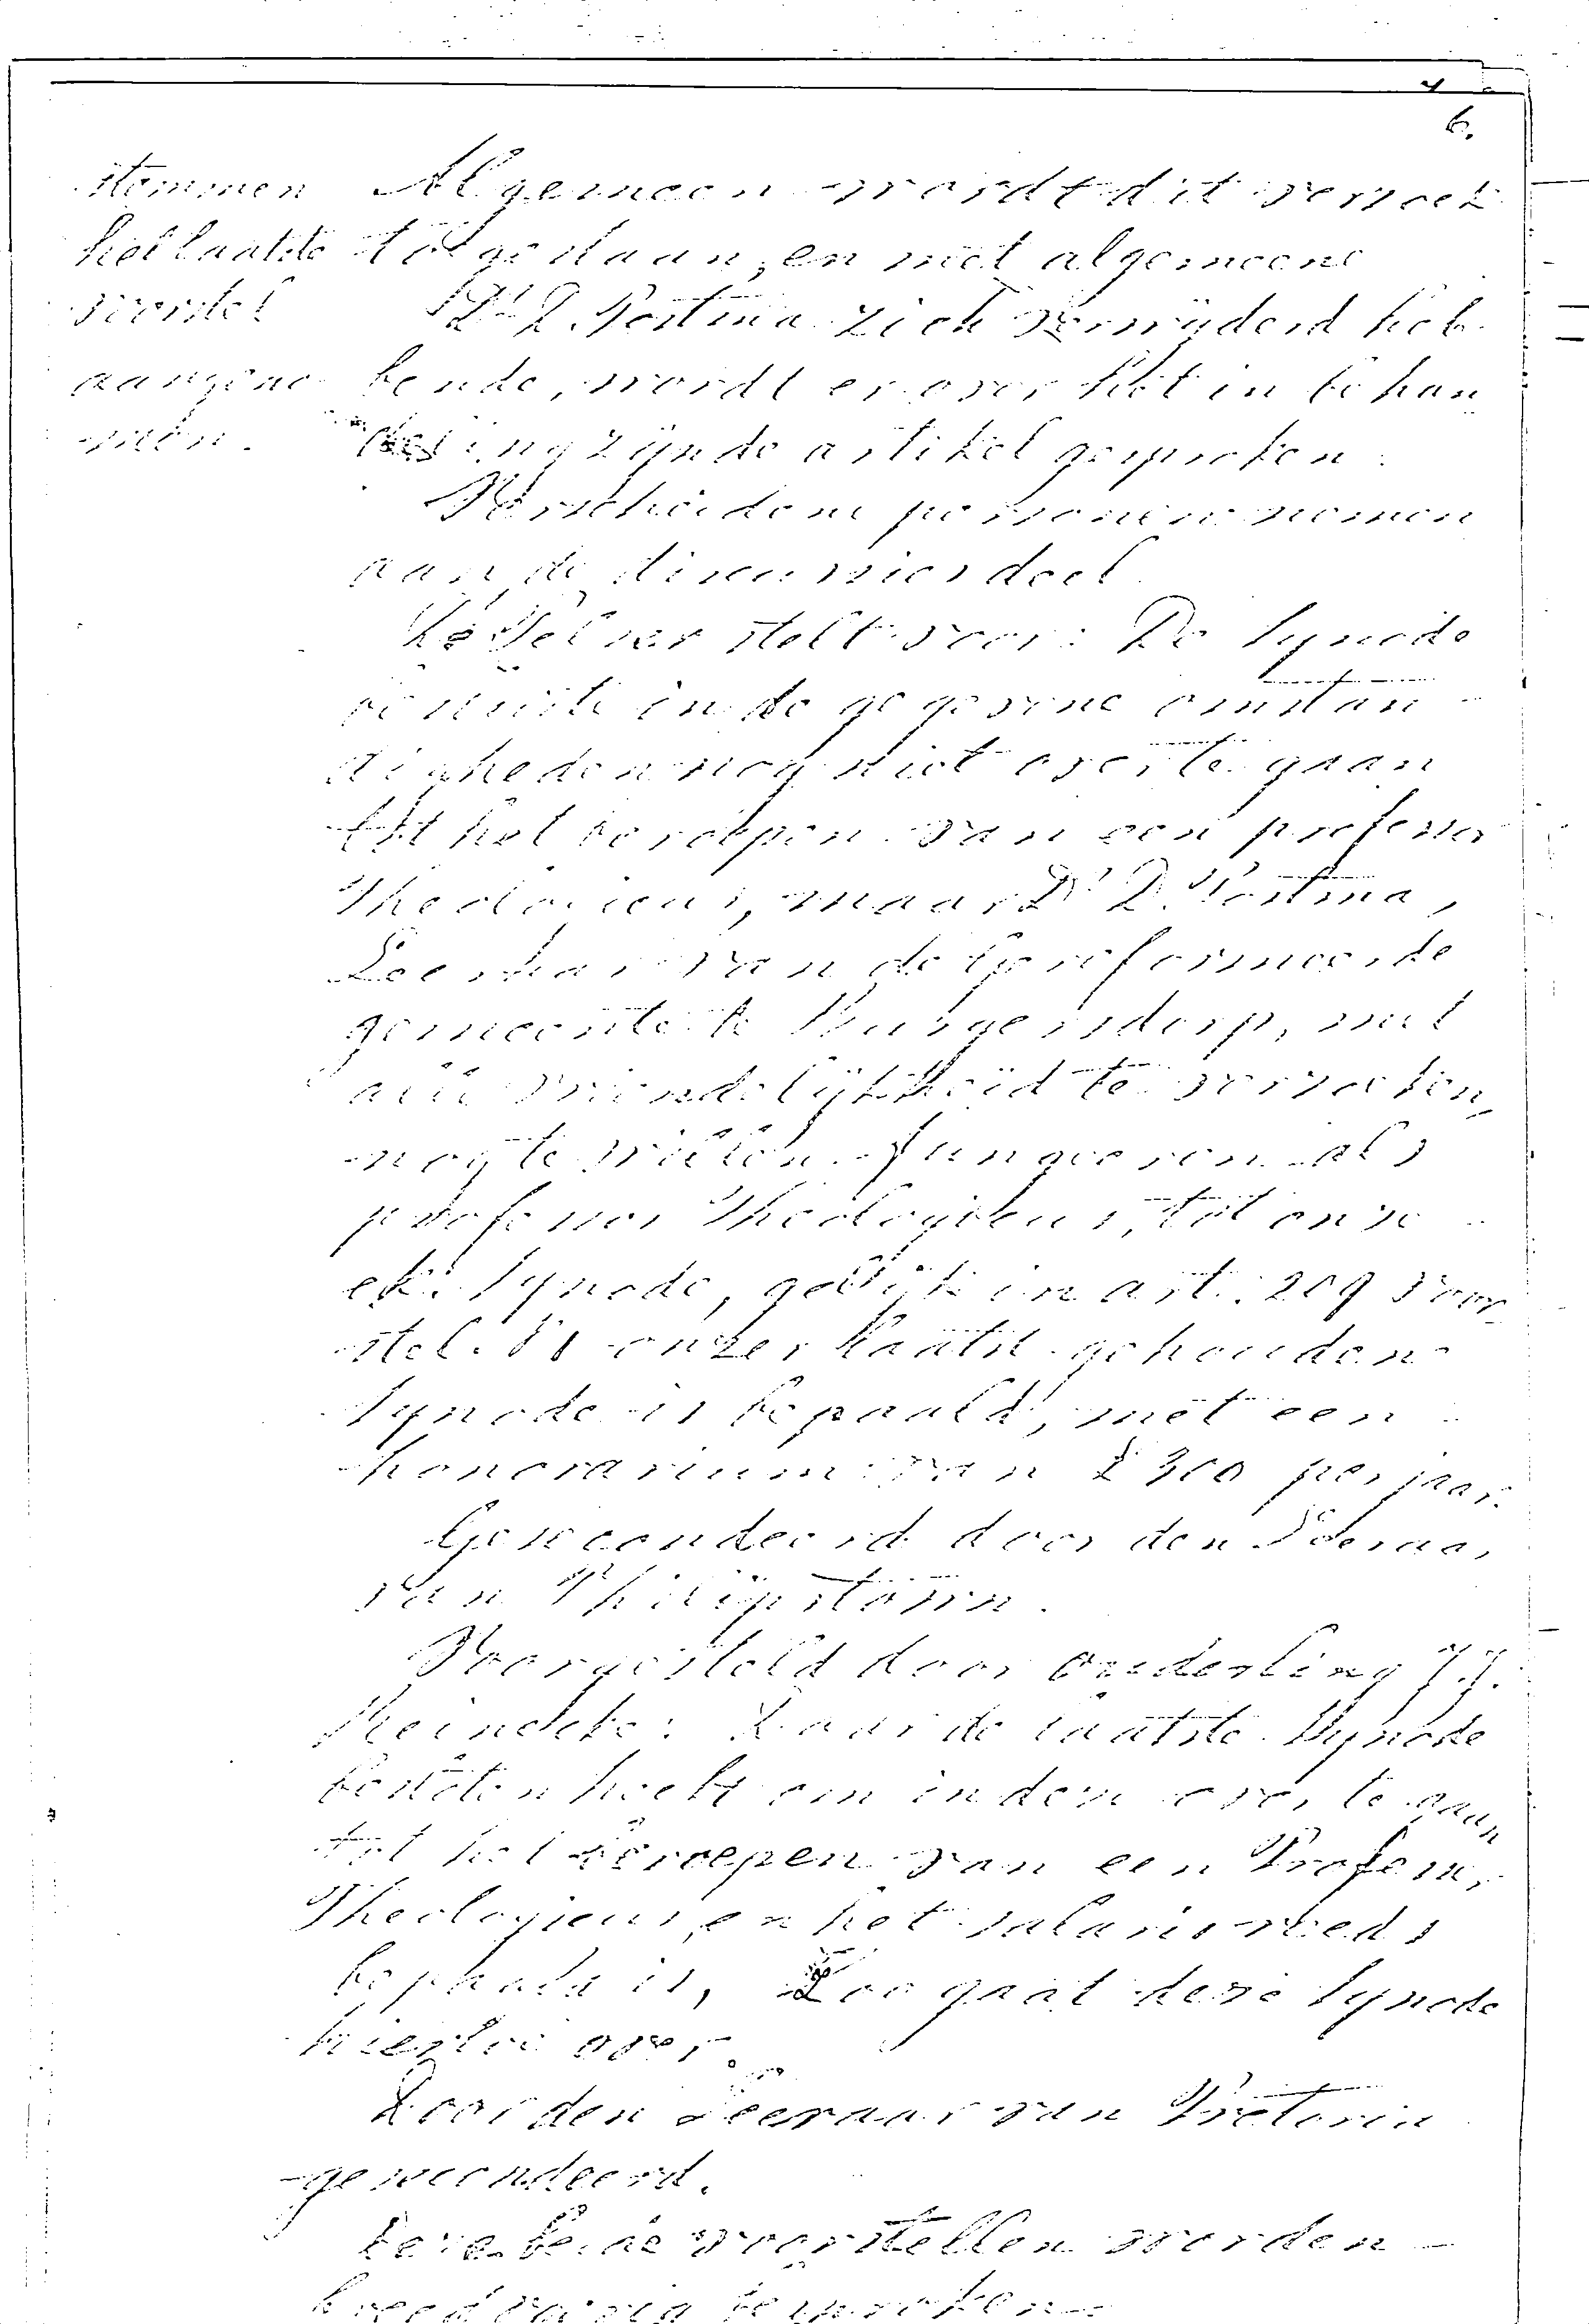 6.
stemmen
het laatste
voorstel
aangeno
men.
Algemeen wordt dit verzoek
toegestaan, en met algemeene
Ds D. Postma zich verwijderd heb
bende, wordt er over het in behan
deling zijnde artikel gesproken.
Verscheidene personen nemen
aan de discussies deel.
stelt voor: De Synode
besluite in de gegevene omstan-
digheden nog niet over te gaan
tot het beroepen van een professor
Theologicus, maar Ds D. Postma,
Leeraar van de Gereformeerde
gemeente te Burgersdorp, met
alle vriendelijkheid te verzoeken,
nog te willen fungeeren als
professor Theologicus, tot onze
ek. Synode, gelijk in art. 209 voor-
stel. onzer laatst gehouden
Synode is bepaald, met een
honorarium van £ 300 per jaar.
Gesecondeerd door den Leeraar
van Philipstown.
Voorgesteld door ouderling J. J.
Meindeke: Daar de laatste Synode
besloten heeft om indezen over te gaan
tot het beroepen van een Professor
Theologicus, en het salaris reeds
bepaald is, Zoo gaat deze Synode
hiertoe over.
Door den Leeraar van Pretoria
gesecondeerd.
Deze beide voorstellen worden
breedvoerig besproken